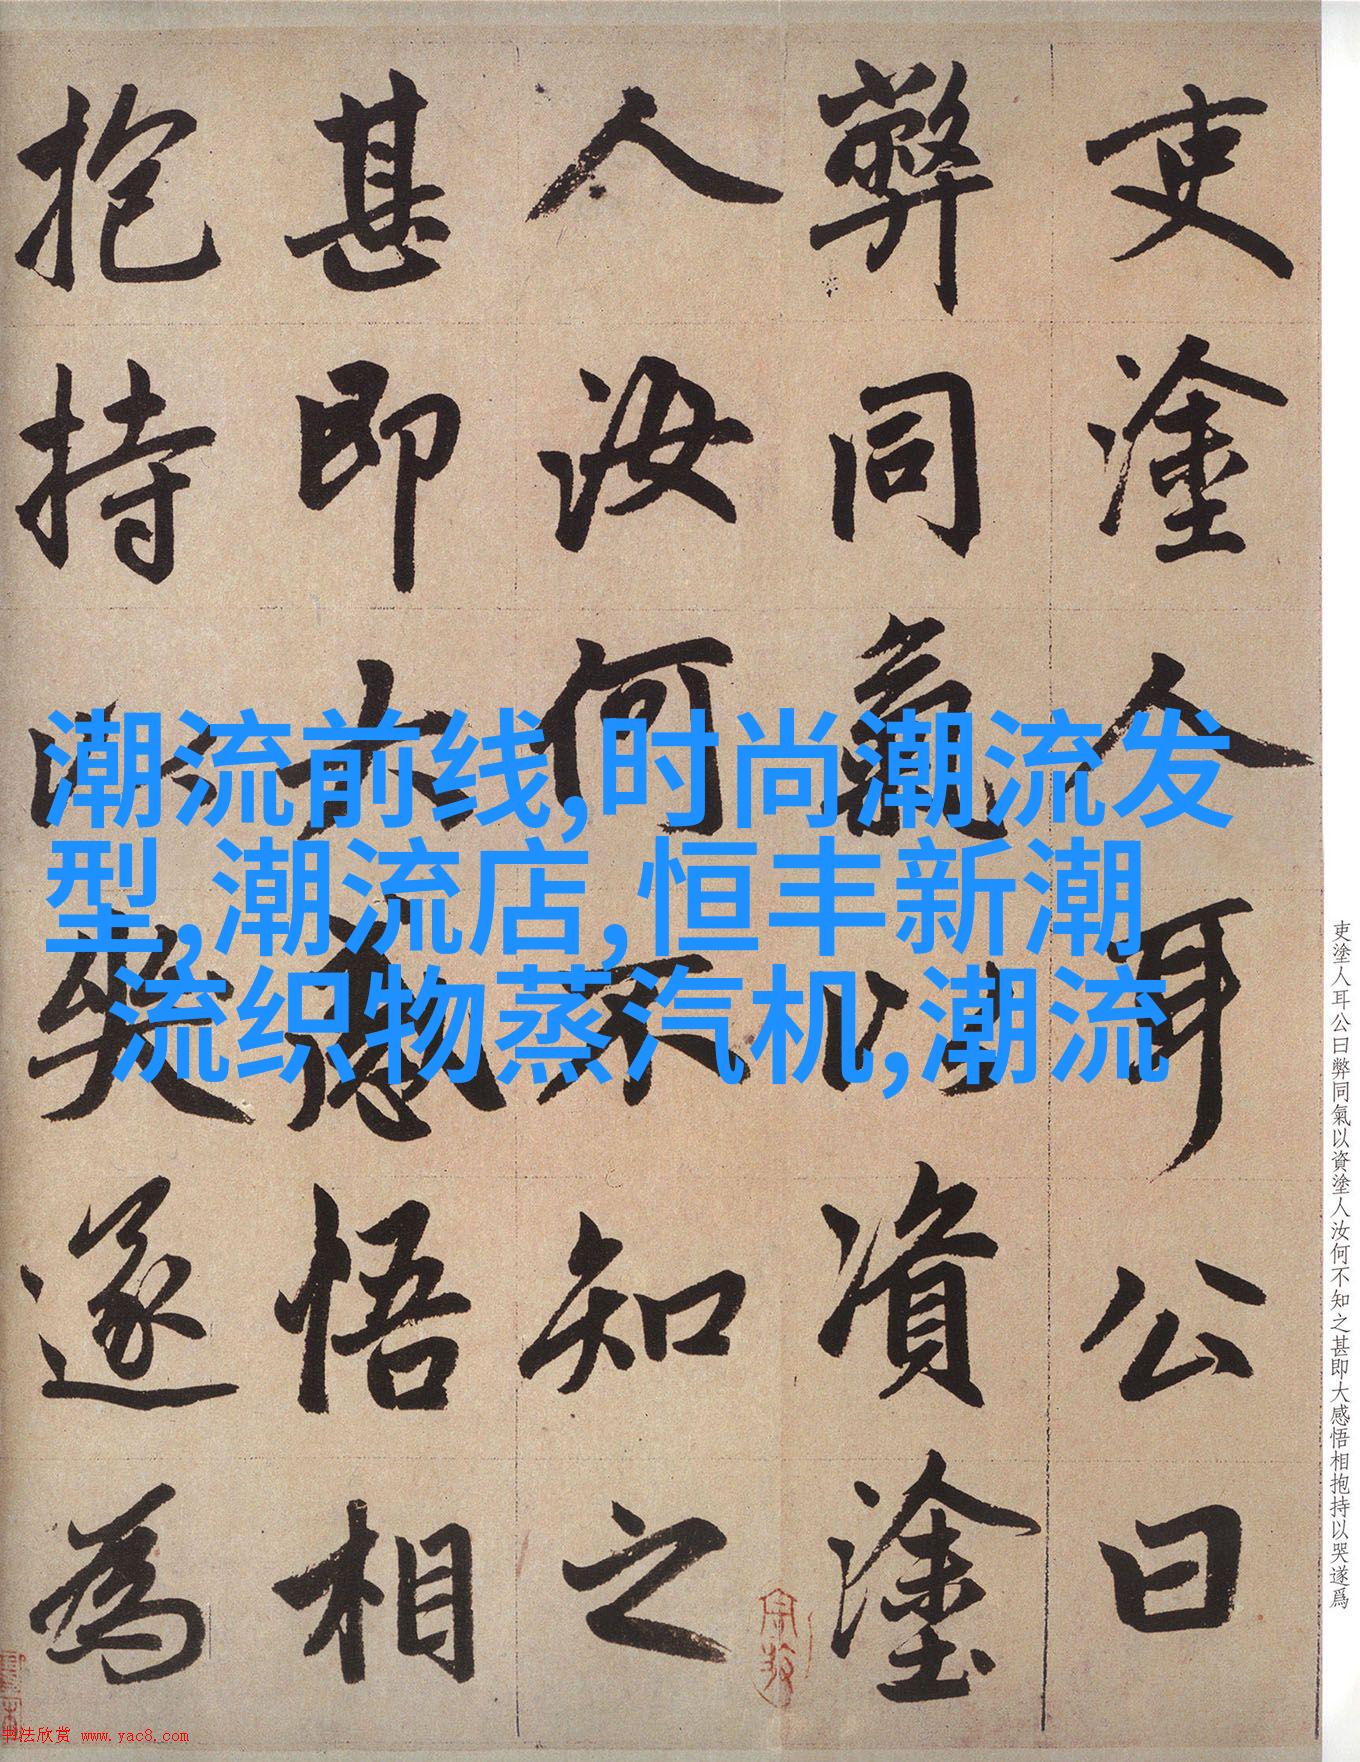 吏塗人耳公曰
弊同氣以資塗
人汝何不知之
甚即大感悟相
抱持以哭遂為
潮流前线,时尚潮流发
型,潮流店,恒丰新潮
流织物蒸汽机,潮流
吏塗人耳公曰弊同氣以資塗人汝何不知之甚即大感悟相抱持以哭遂爲
书法欣赏 www.yac8.com